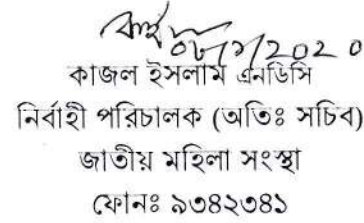 ০৮/১/2020
কাজল ইসলাম এনডিসি
নির্বাহী পরিচালক (অতিঃ সচিব)
জাতীয় মহিলা সংস্থা
ফোনঃ ৯৩৪২৩৪১